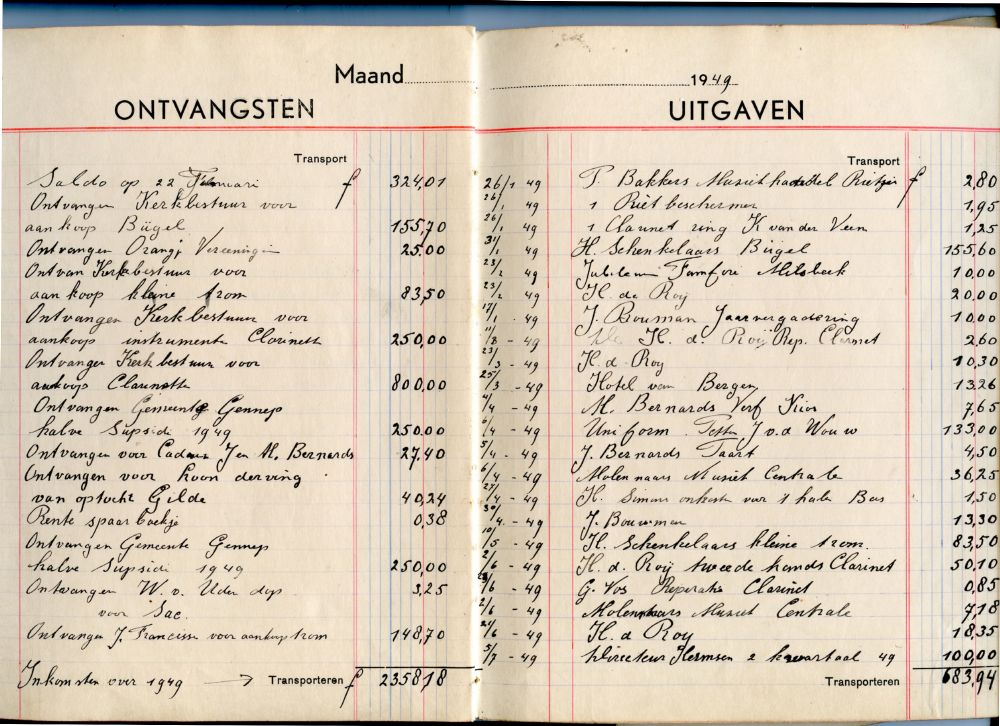 Maand
ONTVANGSTEN
Transport
Saldo op 22 Februari f 324,01
Ontvangen Kerkbestuur voor
aankoop Bügel 155,70
Ontvangen Oranje Vereeniging 25.00
Ontvan Kerkbestuur voor
aankoop kleine trom 83,50
Ontvangen Kerkbestuur voor
aankoop instrumente Clarinett 250,00
Ontvangen Kerkbestuur voor
aankoop Clarinette 800,00
Ontvangen Gemeente Gennep
halve Supsidi 1949 250.00
Ontvangen voor Cadeau J en M. Bernards 27.40
Ontvangen voor Loon derving
van optocht Gilde 40,24
Rente spaarboekje 0,38
Ontvangen Gemeente Gennep
halve Supsidi 1949 250,00
Ontvangen W. v. Uden dop 3,25
voor Sac.
Ontvangen J. Francisse voor aankoop trom 148,70
Inkomsten over 1949 → Transporteren f 2358,18
1949
UITGAVEN
Transport
26/1 49 P. Bakkers Musiekhandel Rietjes f 2,80
26/1 49 1 Riet beschermer 1,95
26/1 49 1 Clarinet ring K van der Veen 1,25
31/1 49 H. Schenkelaars Bügel 155,60
23/2 49 Jubileum Famfore Milsbeek 10,00
23/2 49 H. de Roy 20.00
17/1 . 49 J. Bouman Jaarvergadering 10.00
11/8 - 49 H. d. Roij Rep. Clarinet 2,60
23/3 - 49 H. d. Roy 10,30
25/3 - 49 Hotel van Bergen 13,26
4/4 - 49 M. Bernards Verf Kios 7,65
6/4 - 49 Uniform Petten J v.d Wouw 133,00
5/4 - 49 J. Bernards Taart 4,50
6/4 - 49 Molenaars Musiek Centrale 36,25
27/4 - 49 H. Simons onkosten voor 't halen Bas 1,50
30/4 - 49 J. Bouwman 13,30
10/5 - 49 H. Schenkelaars kleine trom 83,50
2/6 - 49 H. d. Roij tweede hands Clarinet 50,10
/6 - 49 G. Vos Reperatie Clarinet 0,85
2/6 - 49 Molenaars Musiek Centrale 7,18
24/6 - 49 H. d Roy 18,35
5/7 - 49 Directeur Hermsen 2 kwartaal 49 100,00
Transporteren 683,94